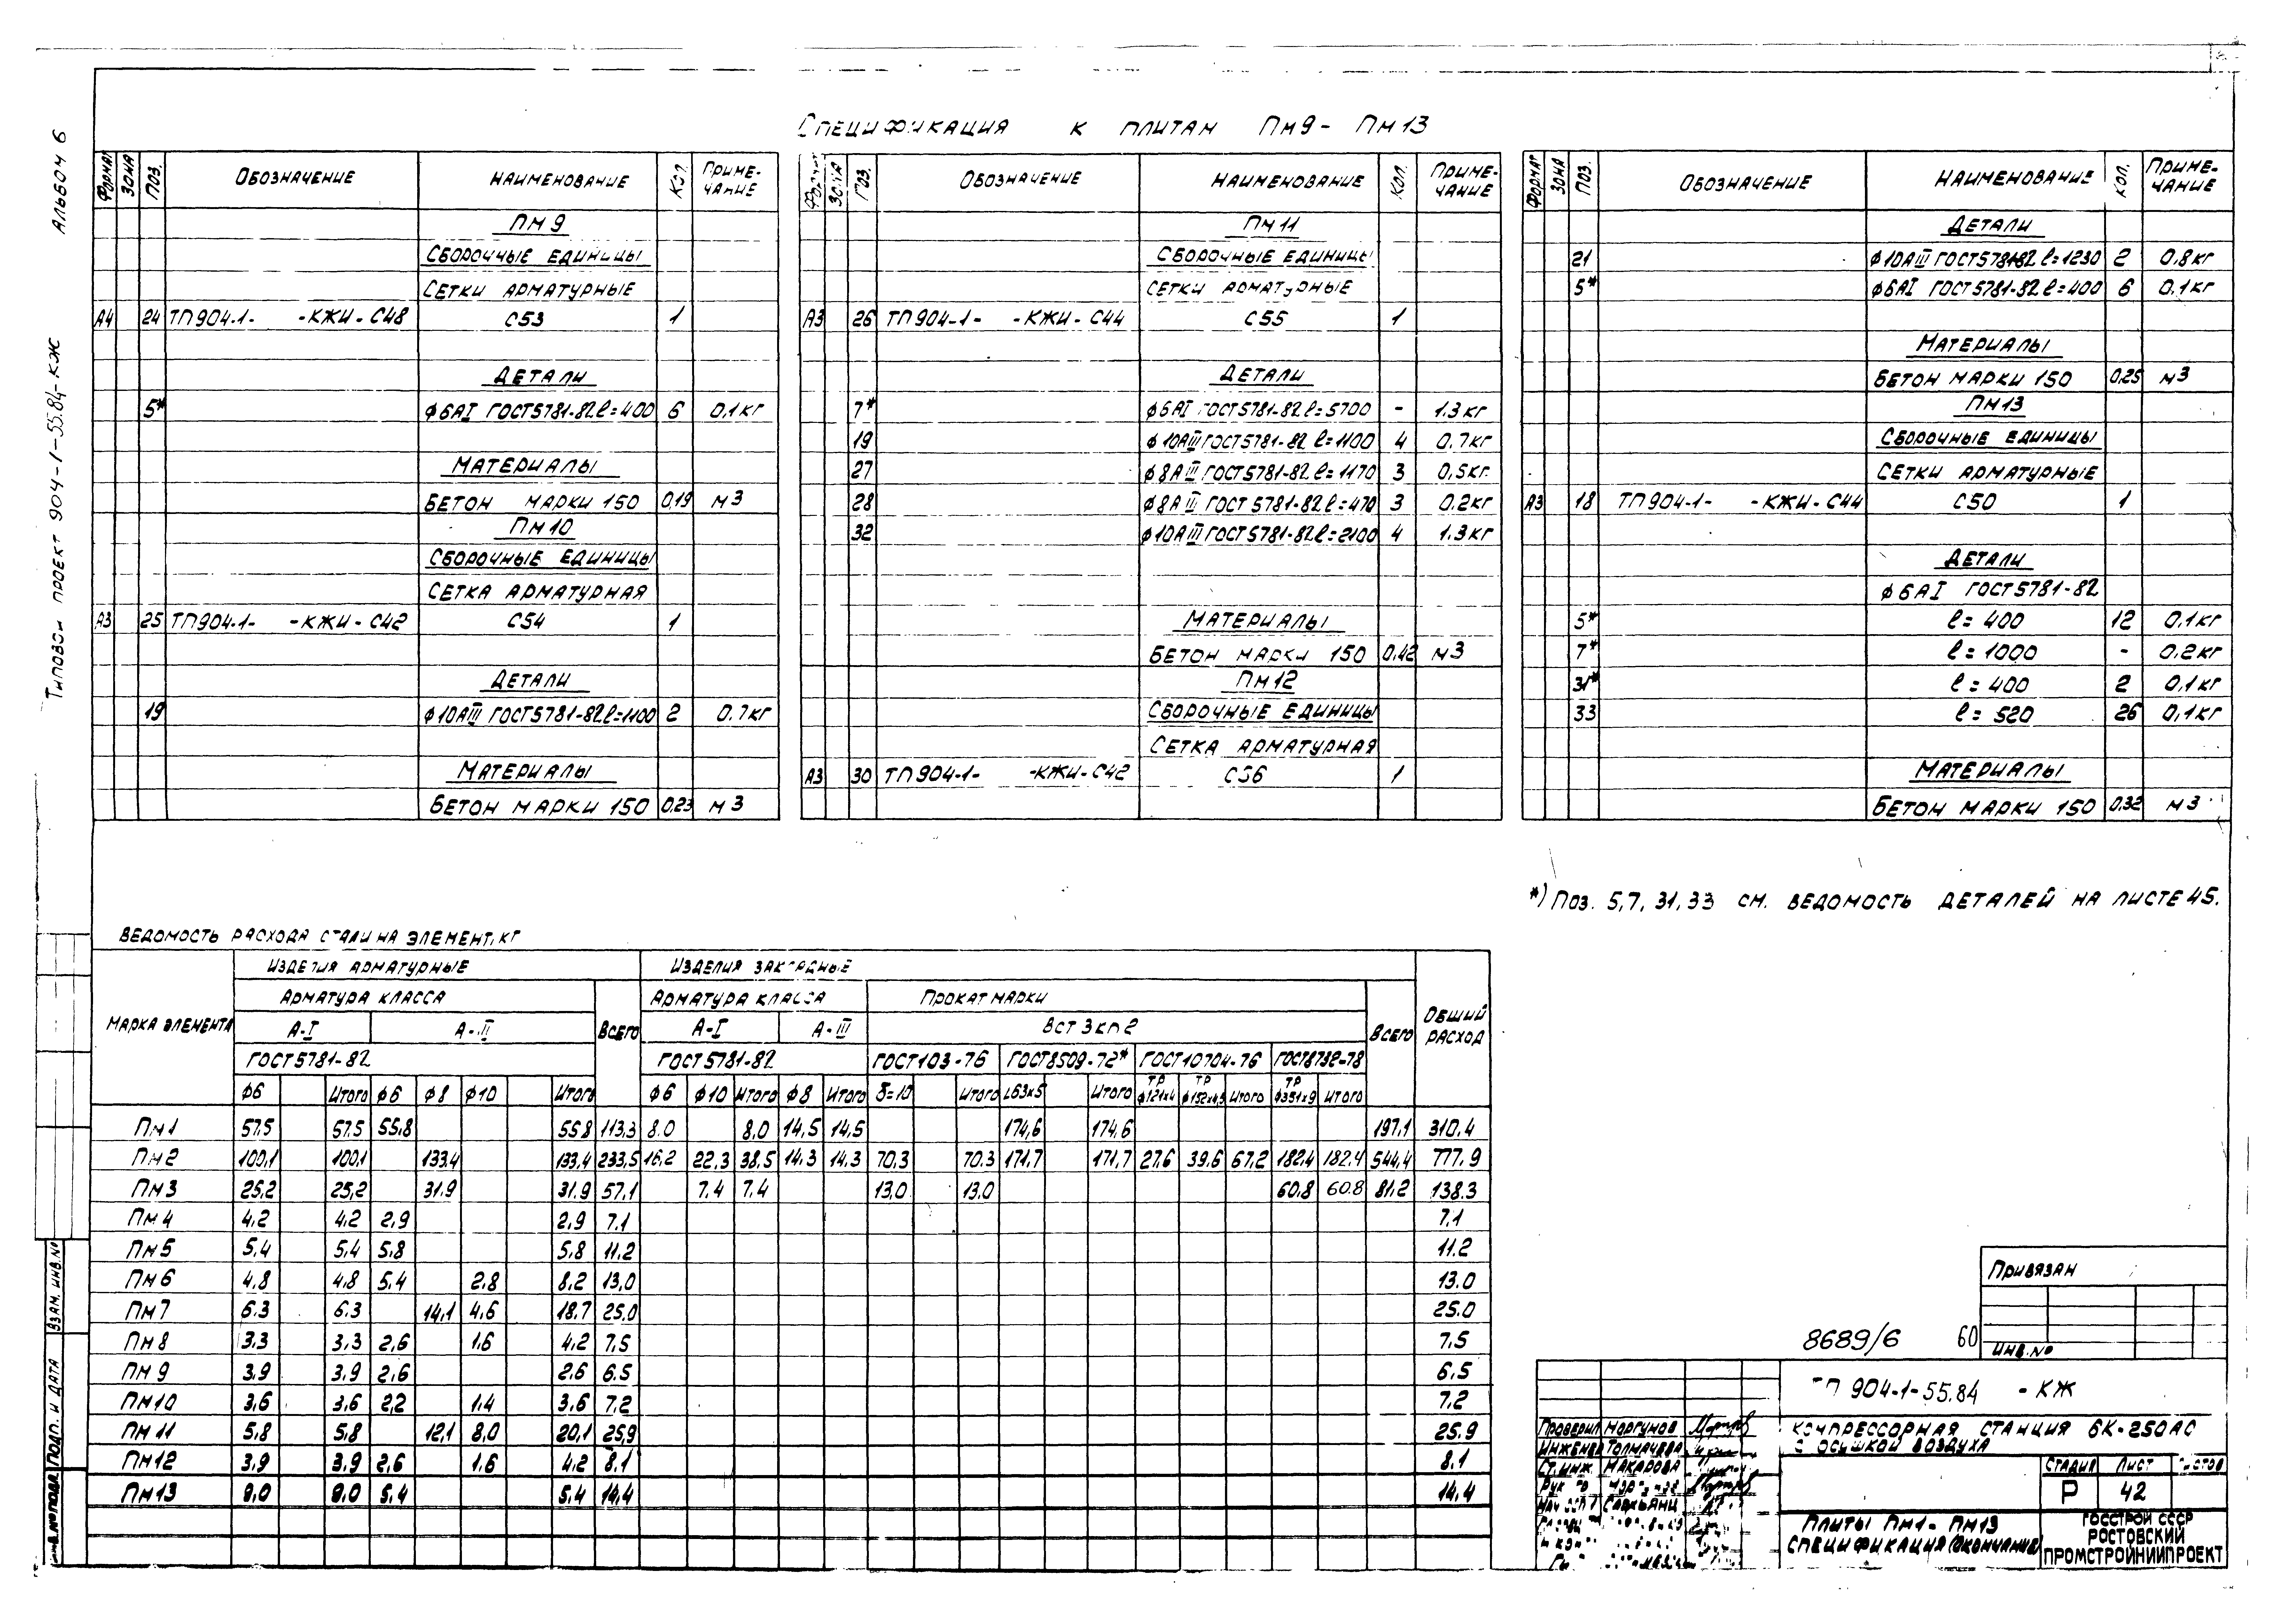 Альбом 6
Типовой проект 904-1-55.84-КЖ
Спецификация к плитам Пм9- Пм13
Формат Зона Поз. Обозначение Наименование Кол. Примечание
Пм9
Сборочные единицы
Сетки арматурные
А4 24 ТП904-1- -КЖИ-С48 С53 1
Детали
5* ф6АI ГОСТ5781-82 ℓ=400 6 0,1кг
Материалы
Бетон марки 150 0,19 м3
Пм10
Сборочные единицы
Сетка арматурная
А3 25 ТП904-1- -КЖИ-С42 С54 1
Детали
19 ф10АIII ГОСТ5781-82 ℓ=1100 2 0.7кг
Материалы
Бетон марки 150 0,23 м3
Формат Зона Поз. Обозначение Наименование Кол. Примечание
Пм11
Сборочные единицы
Сетки арматурные
А3 26 ТП904-1- -КЖИ-С44 С55 1
Детали
7* ф6АI ГОСТ5781-82 ℓ=5700 - 1.3кг
19 ф10АIII ГОСТ5781-82 ℓ=1100 4 0.7кг
27 ф8АIII ГОСТ5781-82 ℓ=1170 3 0,5кг.
28 ф8АIII ГОСТ 5781-82 ℓ=470 3 0.2кг
32 ф10АIII ГОСТ5781-82 ℓ=2100 4 1.3кг
Материалы
Бетон марки 150 0,42 м3
Пм12
Сборочные единицы
Сетка арматурная
А3 30 ТП904-1- -КЖИ-С42 С56 1
Формат Зона Поз. Обозначение Наименование Кол. Примечание
Детали
21 ф10АIII ГОСТ5781-82 ℓ=1230 2 0,8кг
5* ф6АI ГОСТ5781-82 ℓ=400 6 0,1кг
Материалы
Бетон марки 150 0,25 м3
Пм13
Сборочные единицы
Сетки арматурные
А3 18 ТП904-1- -КЖИ-С44 С50 1
Детали
ф6АI ГОСТ5781-82
5* ℓ=400 12 0.1кг
7* ℓ=1000 - 0.2кг
31* ℓ=400 2 0,1кг
33 ℓ=520 26 0,1кг
Материалы
Бетон марки 150 0,32 м3
*) Поз. 5,7, 31, 33 см. ведомость деталей на листе 45.
Ведомость расхода стали на элемент, кг
Марка элемента Изделия арматурные Изделия закладные Общий расход
Арматура класса Всего Арматура класса Прокат марки Всего
А-I А-II А-I А-III Вст3кп2
ГОСТ5781-82 ГОСТ5781-82 ГОСТ103-76 ГОСТ8509-72* ГОСТ10704-76 ГОСТ8732-78
ф6 Итого ф6 ф8 ф10 Итого ф6 ф10 Итого ф8 Итого δ=10 Итого L63х5 Итого Тр ф121х4 Тр ф152х4,5 Итого Тр ф351х9 Итого
Пм1 57.5 57.5 55,8 55.8 113,3 8.0 8,0 14,5 14,5 174,6 174,6 197,1 310,4
Пм2 100,1 100,1 133,4 133,4 233,5 16,2 22,3 38,5 14,3 14,3 70,3 70.3 171,7 171,7 27,6 39,6 67,2 182,4 182,4 544,4 777.9
Пм3 25,2 25,2 31.9 31.9 57,1 7.4 7,4 13,0 13.0 60,8 60.8 81,2 138.3
Пм4 4,2 4,2 2,9 2,9 7,1 7,1
Пм5 5,4 5,4 5,8 5,8 11,2 11,2
Пм6 4,8 4,8 5,4 2,8 8,2 13,0 13.0
Пм7 6.3 6.3 14,1 4,6 18,7 25,0 25.0
Пм8 3,3 3,3 2,6 1,6 4,2 7,5 7,5
Пм9 3,9 3,9 2,6 2,6 6.5 6,5
Пм10 3,6 3,6 2,2 1,4 3,6 7,2 7.2
Пм11 5,8 5,8 12,1 8,0 20,1 25,9 25.9
Пм12 3,9 3,9 2,6 1,6 4,2 8,1 8.1
Пм13 9,0 9,0 5,4 5,4 14,4 14,4
Взам. инв.№
Подп. и дата
Инв.№подл.
Привязан
Инв.№
8689/6 60
ТП 904-1-55.84 -КЖ
Проверил Моргунов
Инженер Толмачева
Ст.инж. Макарова
Компрессорная станция 6К-250АС
с осушкой воздуха
Стадия Лист Листов
Р 42
Плиты Пм1- Пм13
Спецификация (окончание)
ГОССТРОЙ СССР
РОСТОВСКИЙ
ПРОМСТРОЙНИИПРОЕКТ